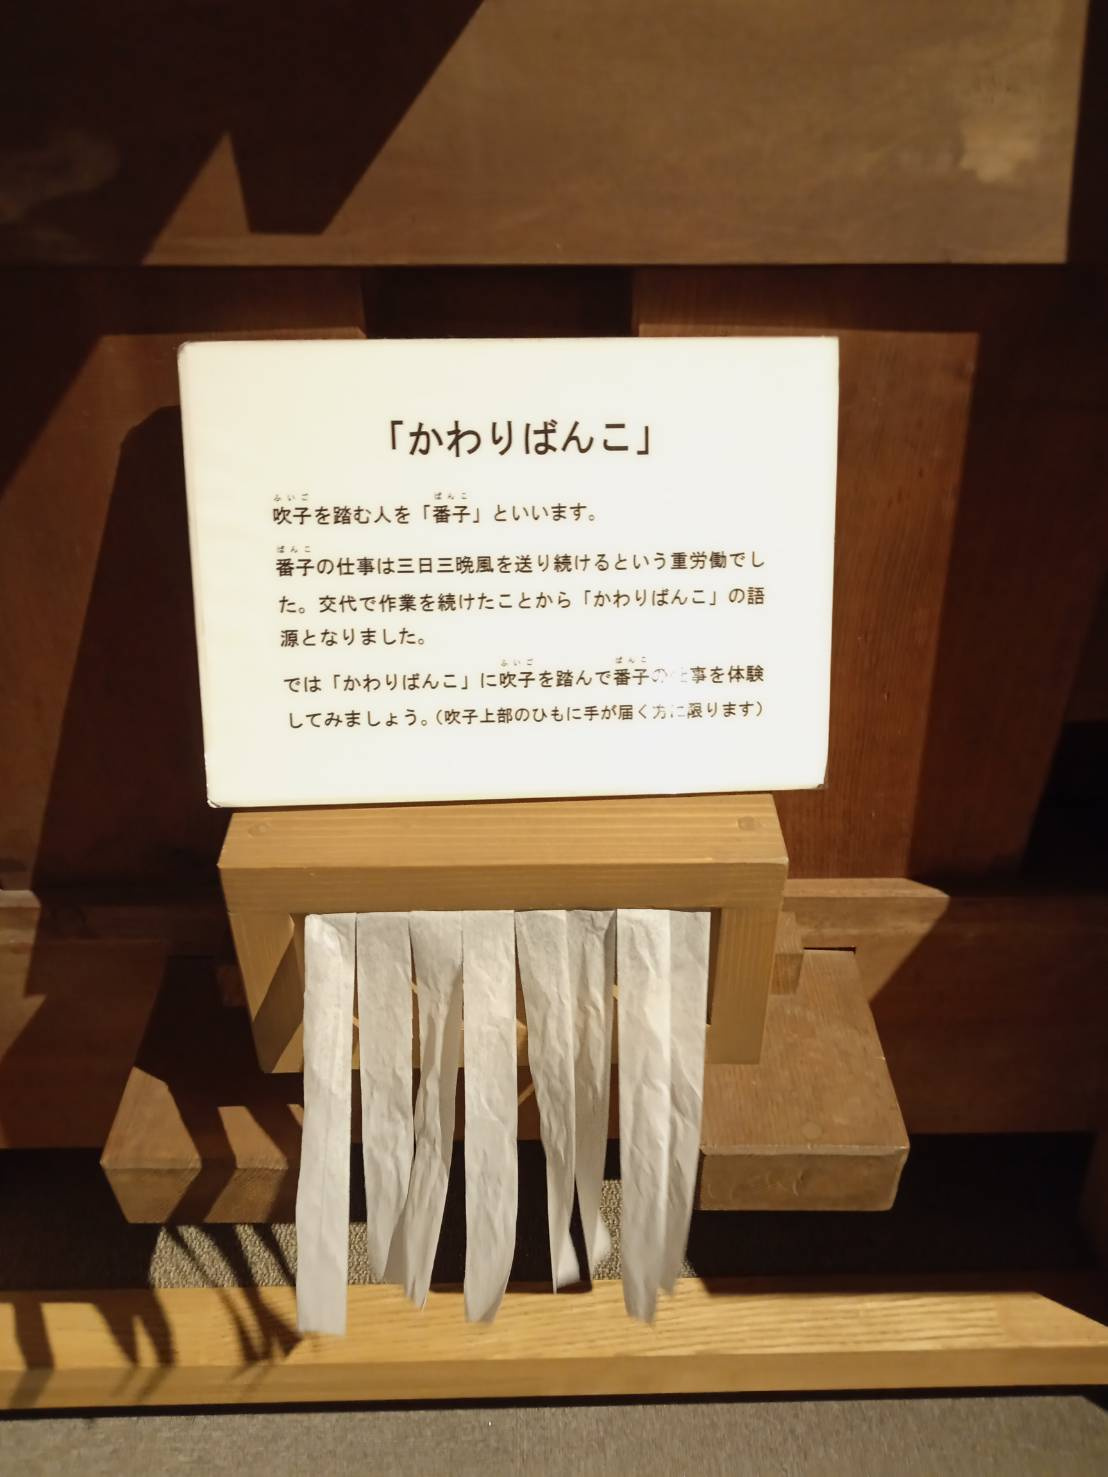 「かわりばんこ」
吹子を踏む人を「番子」といいます。
番子の仕事は三日三晩風を送り続けるという重労働でし
た。交代で作業を続けたことから「かわりばんこ」の語
源となりました。
では「かわりばんこ」に吹子を踏んで番子の仕事を体験
してみましょう。（吹子上部のひもに手が届く方に限ります）